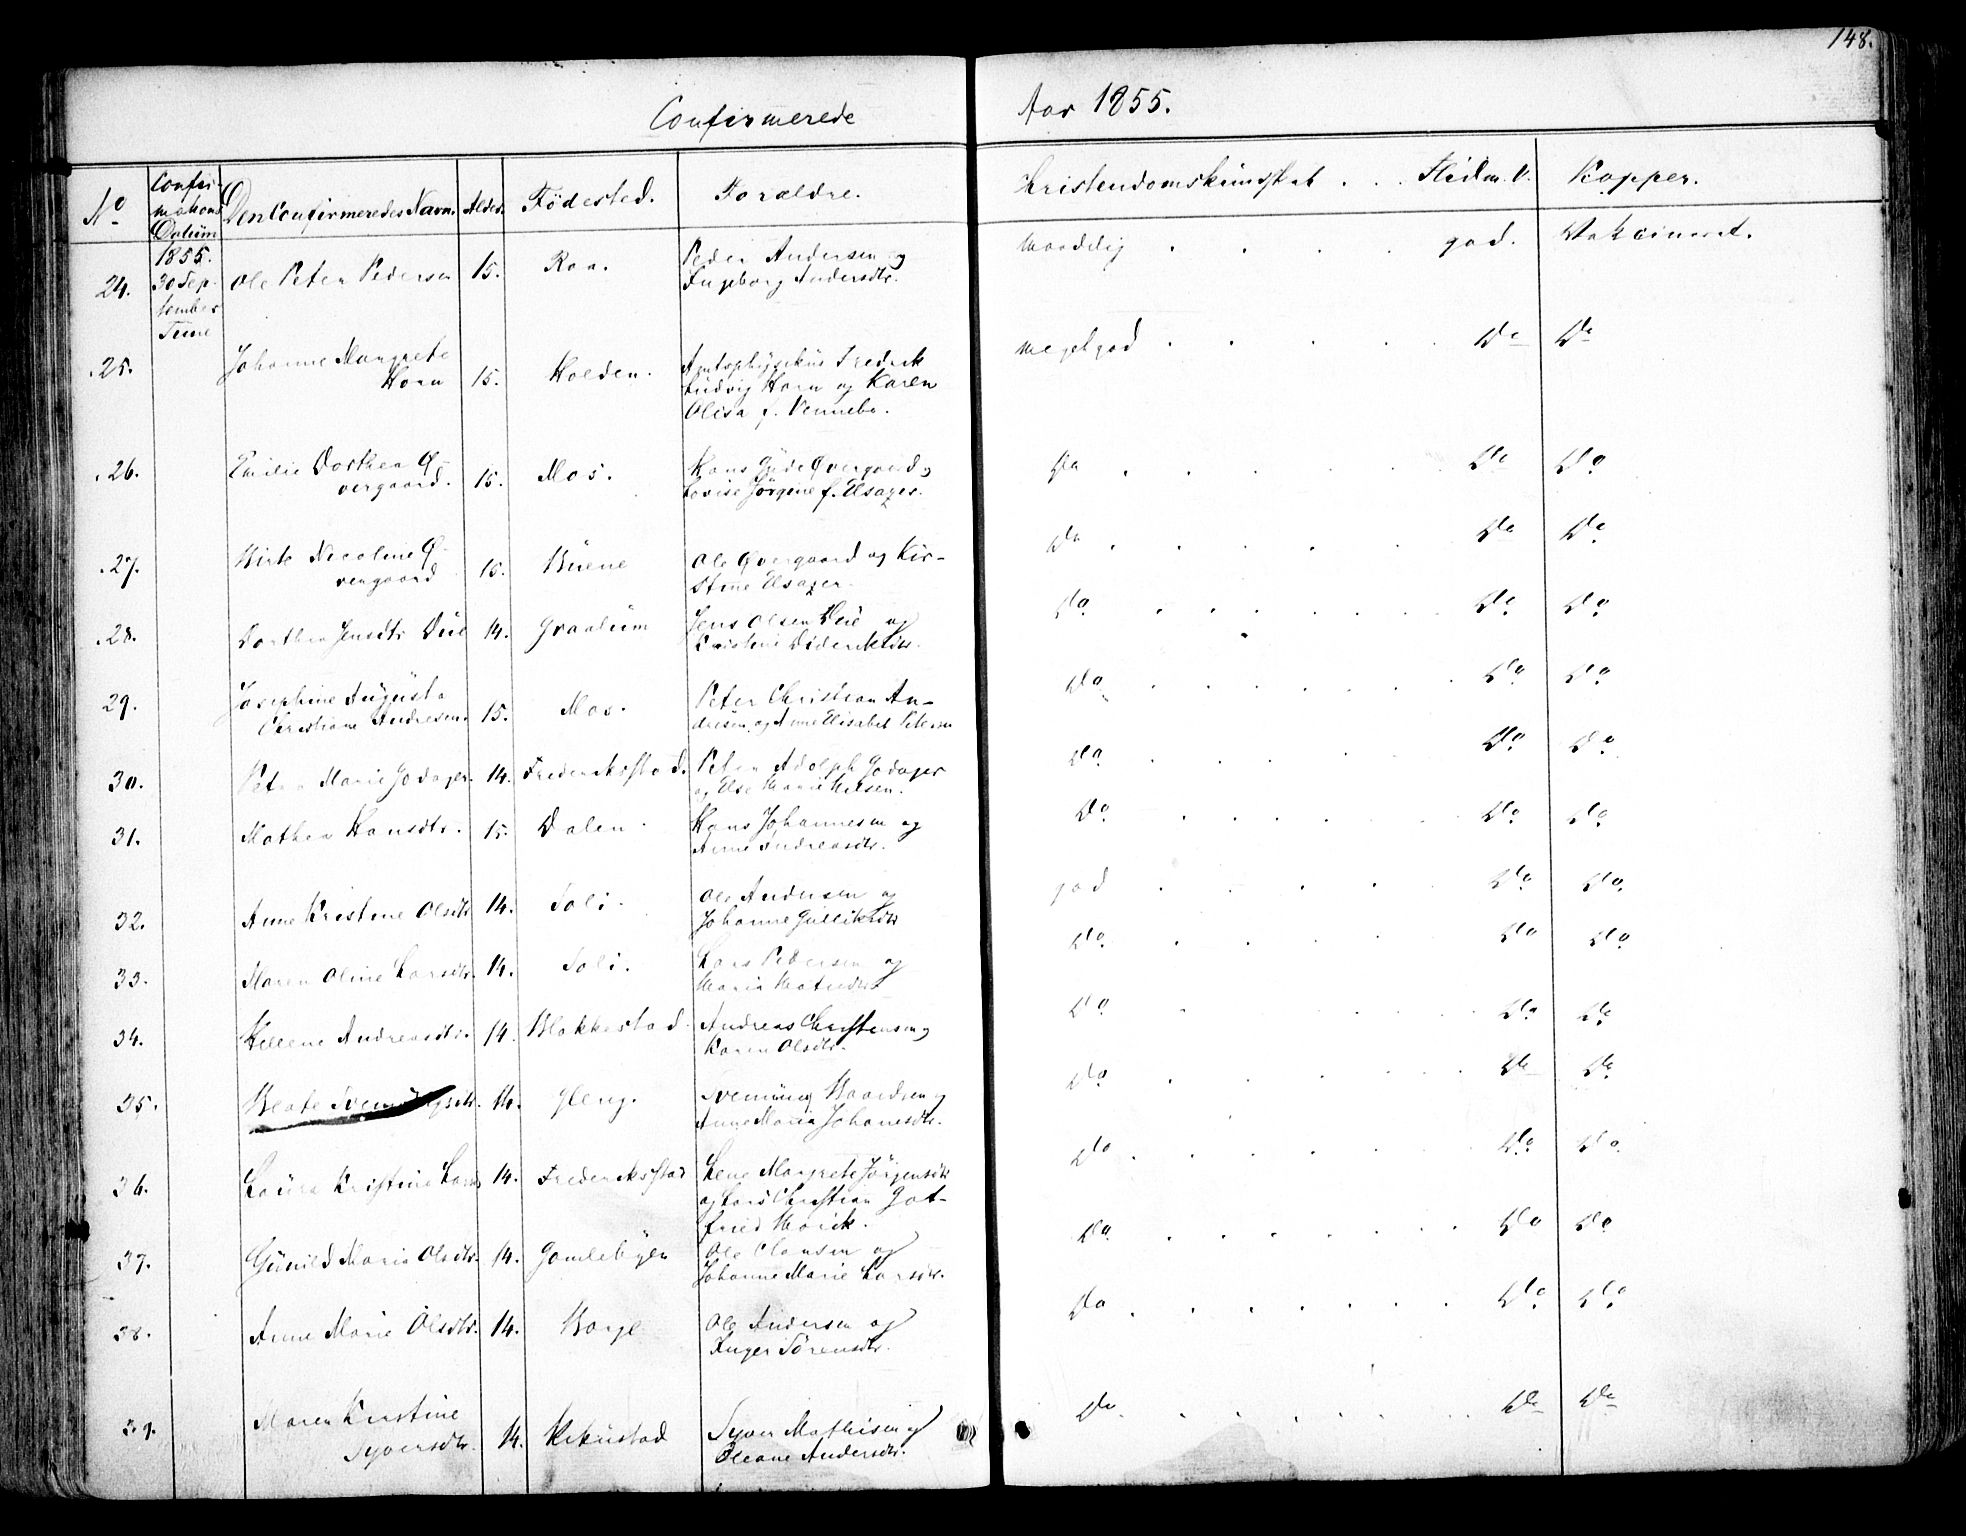 148.
Confirmerede Aar 1855.
No Confirmations Datum Den Confirmeredes Navn. Alder. Födested. Forældre. Christendomskundskab . . . Flid m. V. Kopper.
1855.
24. 30 September Tune Ole Peter Pedersen 15. Raa. Peder Andersen og
Ingeborg Andersdtr. maadelig . . . . god. Vakcineret.
25. Johanne Margrete
Horn 15. Halden. Amtsphysikus Fredrik
Ludvig Horn og Karen
Olisa f. Vennebo. meget god . . . . . Do Do
26. Emilie Dorthea Ø-
vergaard. 15. Mos. Hans Gude Øvergaard og
Lovise Jørgine f. Elsager. Do . . . . . Do Do
27. Birte Nicoline Ø-
vergaard 15. Buene Ole Øvergaard og Kir-
stine Elsager. Do . . . . . Do Do
28. Dorthea Jensdtr Due 14. Graalum Jens Olsen Due og
Kristine Dideriksdtr. Do . . . . . Do Do
29. Josephine Augusta
Christiane Andresen. 15. Mos. Peter Christian An-
dresen og Anne Elisabet Petersen Do . . . . . Do Do
30. Petra Marie Godager. 14. Frederiksstad. Peter Adolph Godager
og Else Marie Nilsen. Do . . . Do Do
31. Mathea Hansdtr. 15. Dalen. Hans Johannesen og
Anne Andreasdtr. Do . . . . . Do Do
32. Anne Kristine Olsdtr 14. Soli. Ole Andersen og
Johanne Gulliksdtr god . . . . Do Do
33. Maren Oline Larsdtr. 14. Soli. Lars Pedersen og
Maria Do . . . . Do Do
34. Hellene Andreasdtr. 14. Blakkestad. Andreas Christensen og
Karen Olsdtr. Do . . . Do Do
35. Beate Svenningsdtr. 14. Gleng. Svenning Baardsen og
Anne Maria Johanesdtr. Do . . . . . Do Do
36. Laura Kristine Lars 14. Frederiksstad Lene Margrete Jörgensdtr
og Lars Christian Got-
fried Do . . . . . Do Do
37. Gunild Maria Olsdtr. 14. Gamlebyen Ole Clausen og
Johanne Marie Larsdtr. Do . . . . . Do Do
38. Anne Marie Olsdtr. 14. Borge Ole Andersen og
Inger Sörensdtr. Do . . . . . . Do Do
39. Maren Kristine
Syversdtr. 14. Syver Mathisen og
Oleane Andersdtr. Do . . . . . Do Do